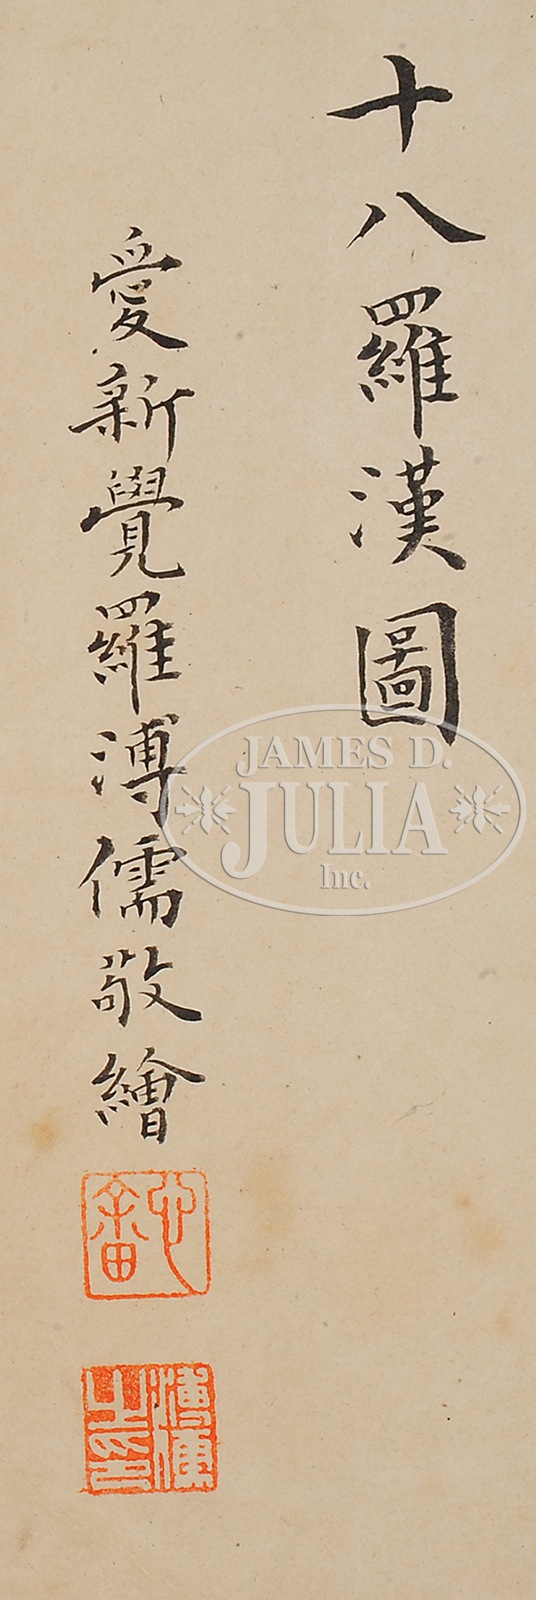 十八羅漢圖
愛新覺羅溥儒敬繪
心畬
溥儒之印
JAMES D.
JULIA
Inc.